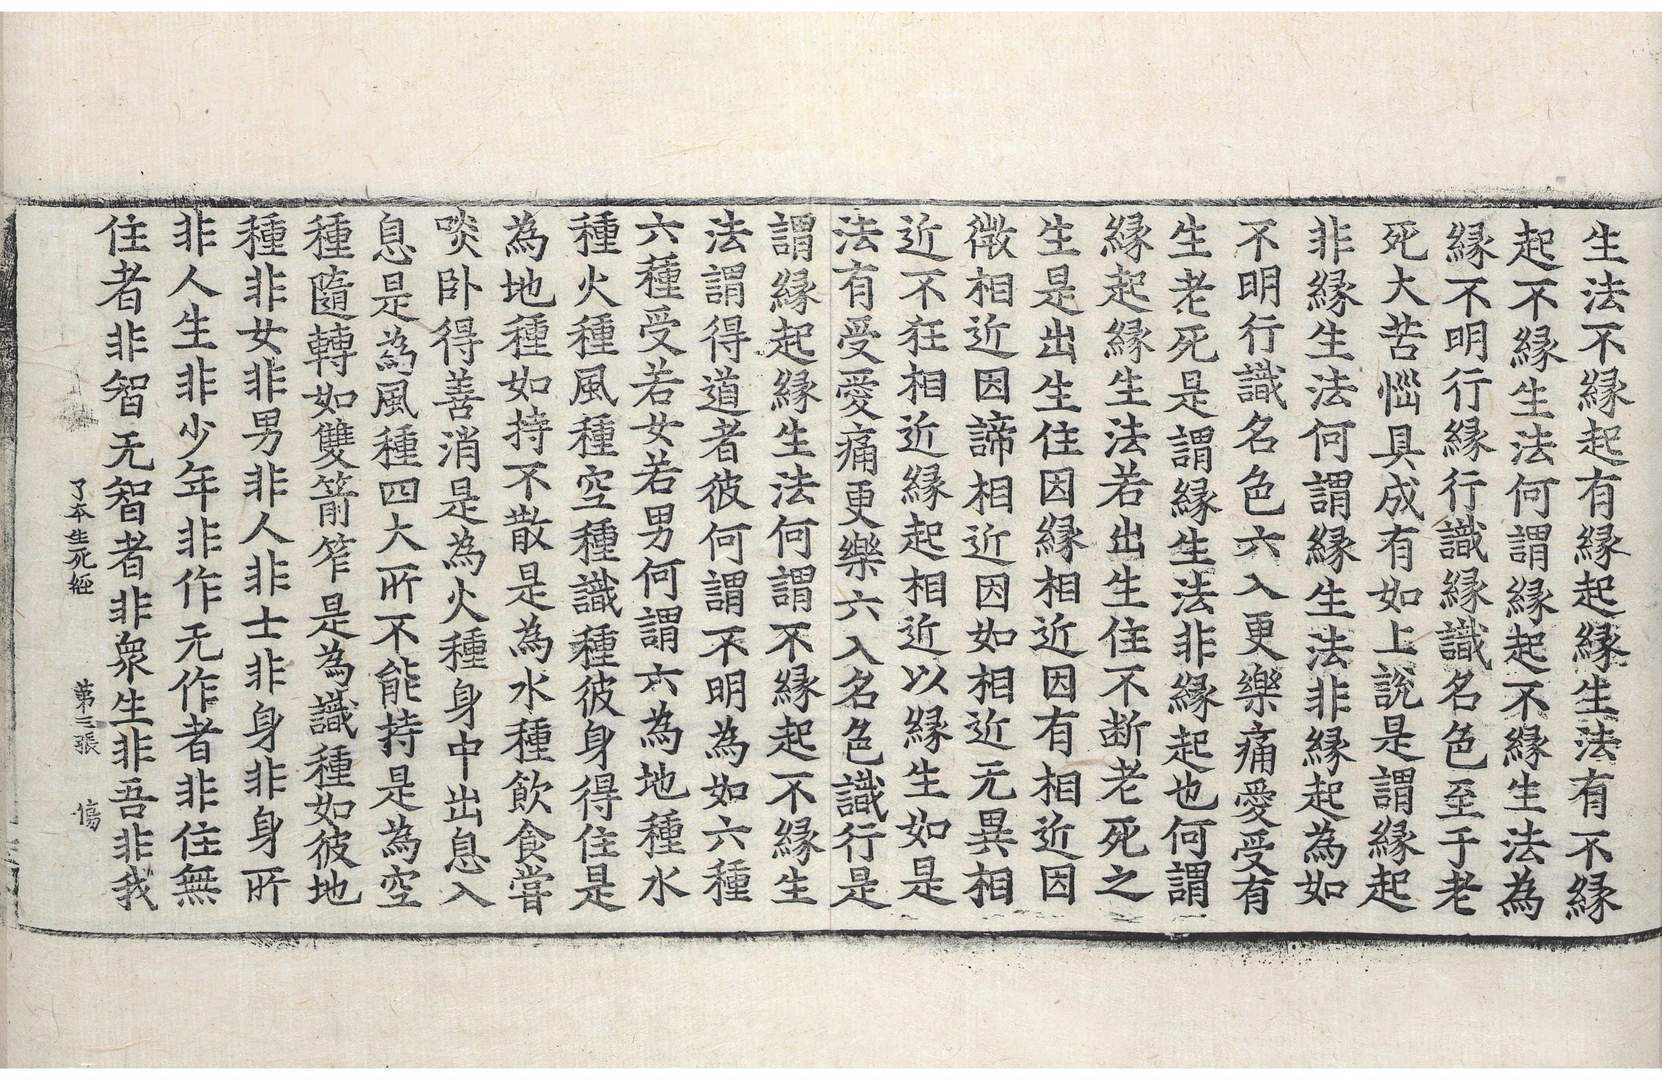 生法不縁起有縁起縁生法有不縁
起不縁生法何謂縁起不縁生法為
縁不明行縁行識縁識名色至于老
死大苦惱具成有如上說是謂縁起
非縁生法何謂縁生法非縁起為如
不明行識名色六入更樂痛愛受有
生老死是謂縁生法非縁起也何謂
縁起縁生法若出生住不断老死之
生是出生住因縁相近因有相近因
徵相近因諦相近因如相近无異相
近不狂相近縁起相近以縁生如是
法有受愛痛更樂六入名色識行是
謂縁起縁生法何謂不縁起不縁生
法謂得道者彼何謂不明為如六種
六種受若女若男何謂六為地種水
種火種風種空種識種彼身得住是
為地種如持不散是為水種飲食嘗
啖卧得善消是為火種身中出息入
息是為風種四大所不能持是為空
種隨轉如雙箭笮是為識種如彼地
種非女非男非人非士非身非身所
非人生非少年非作无作者非住無
住者非智无智者非衆生非吾非我
了本生死經 第三張 傷